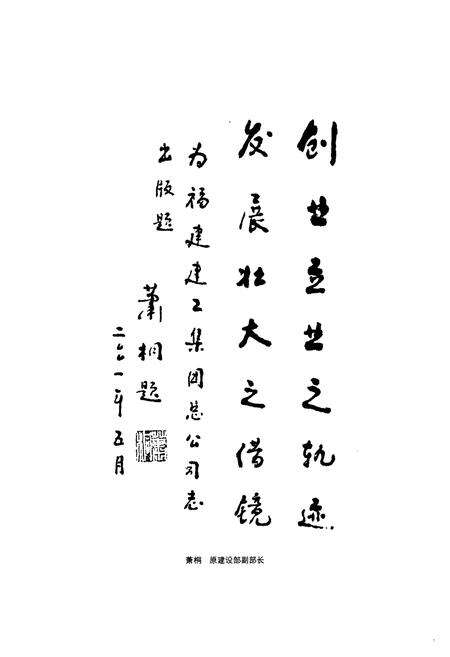 创业立业之轨迹
发展壮大之借镜
为福建建工集团总公司志
出版题
萧桐题
二〇〇一年五月
萧桐 原建设部副部长